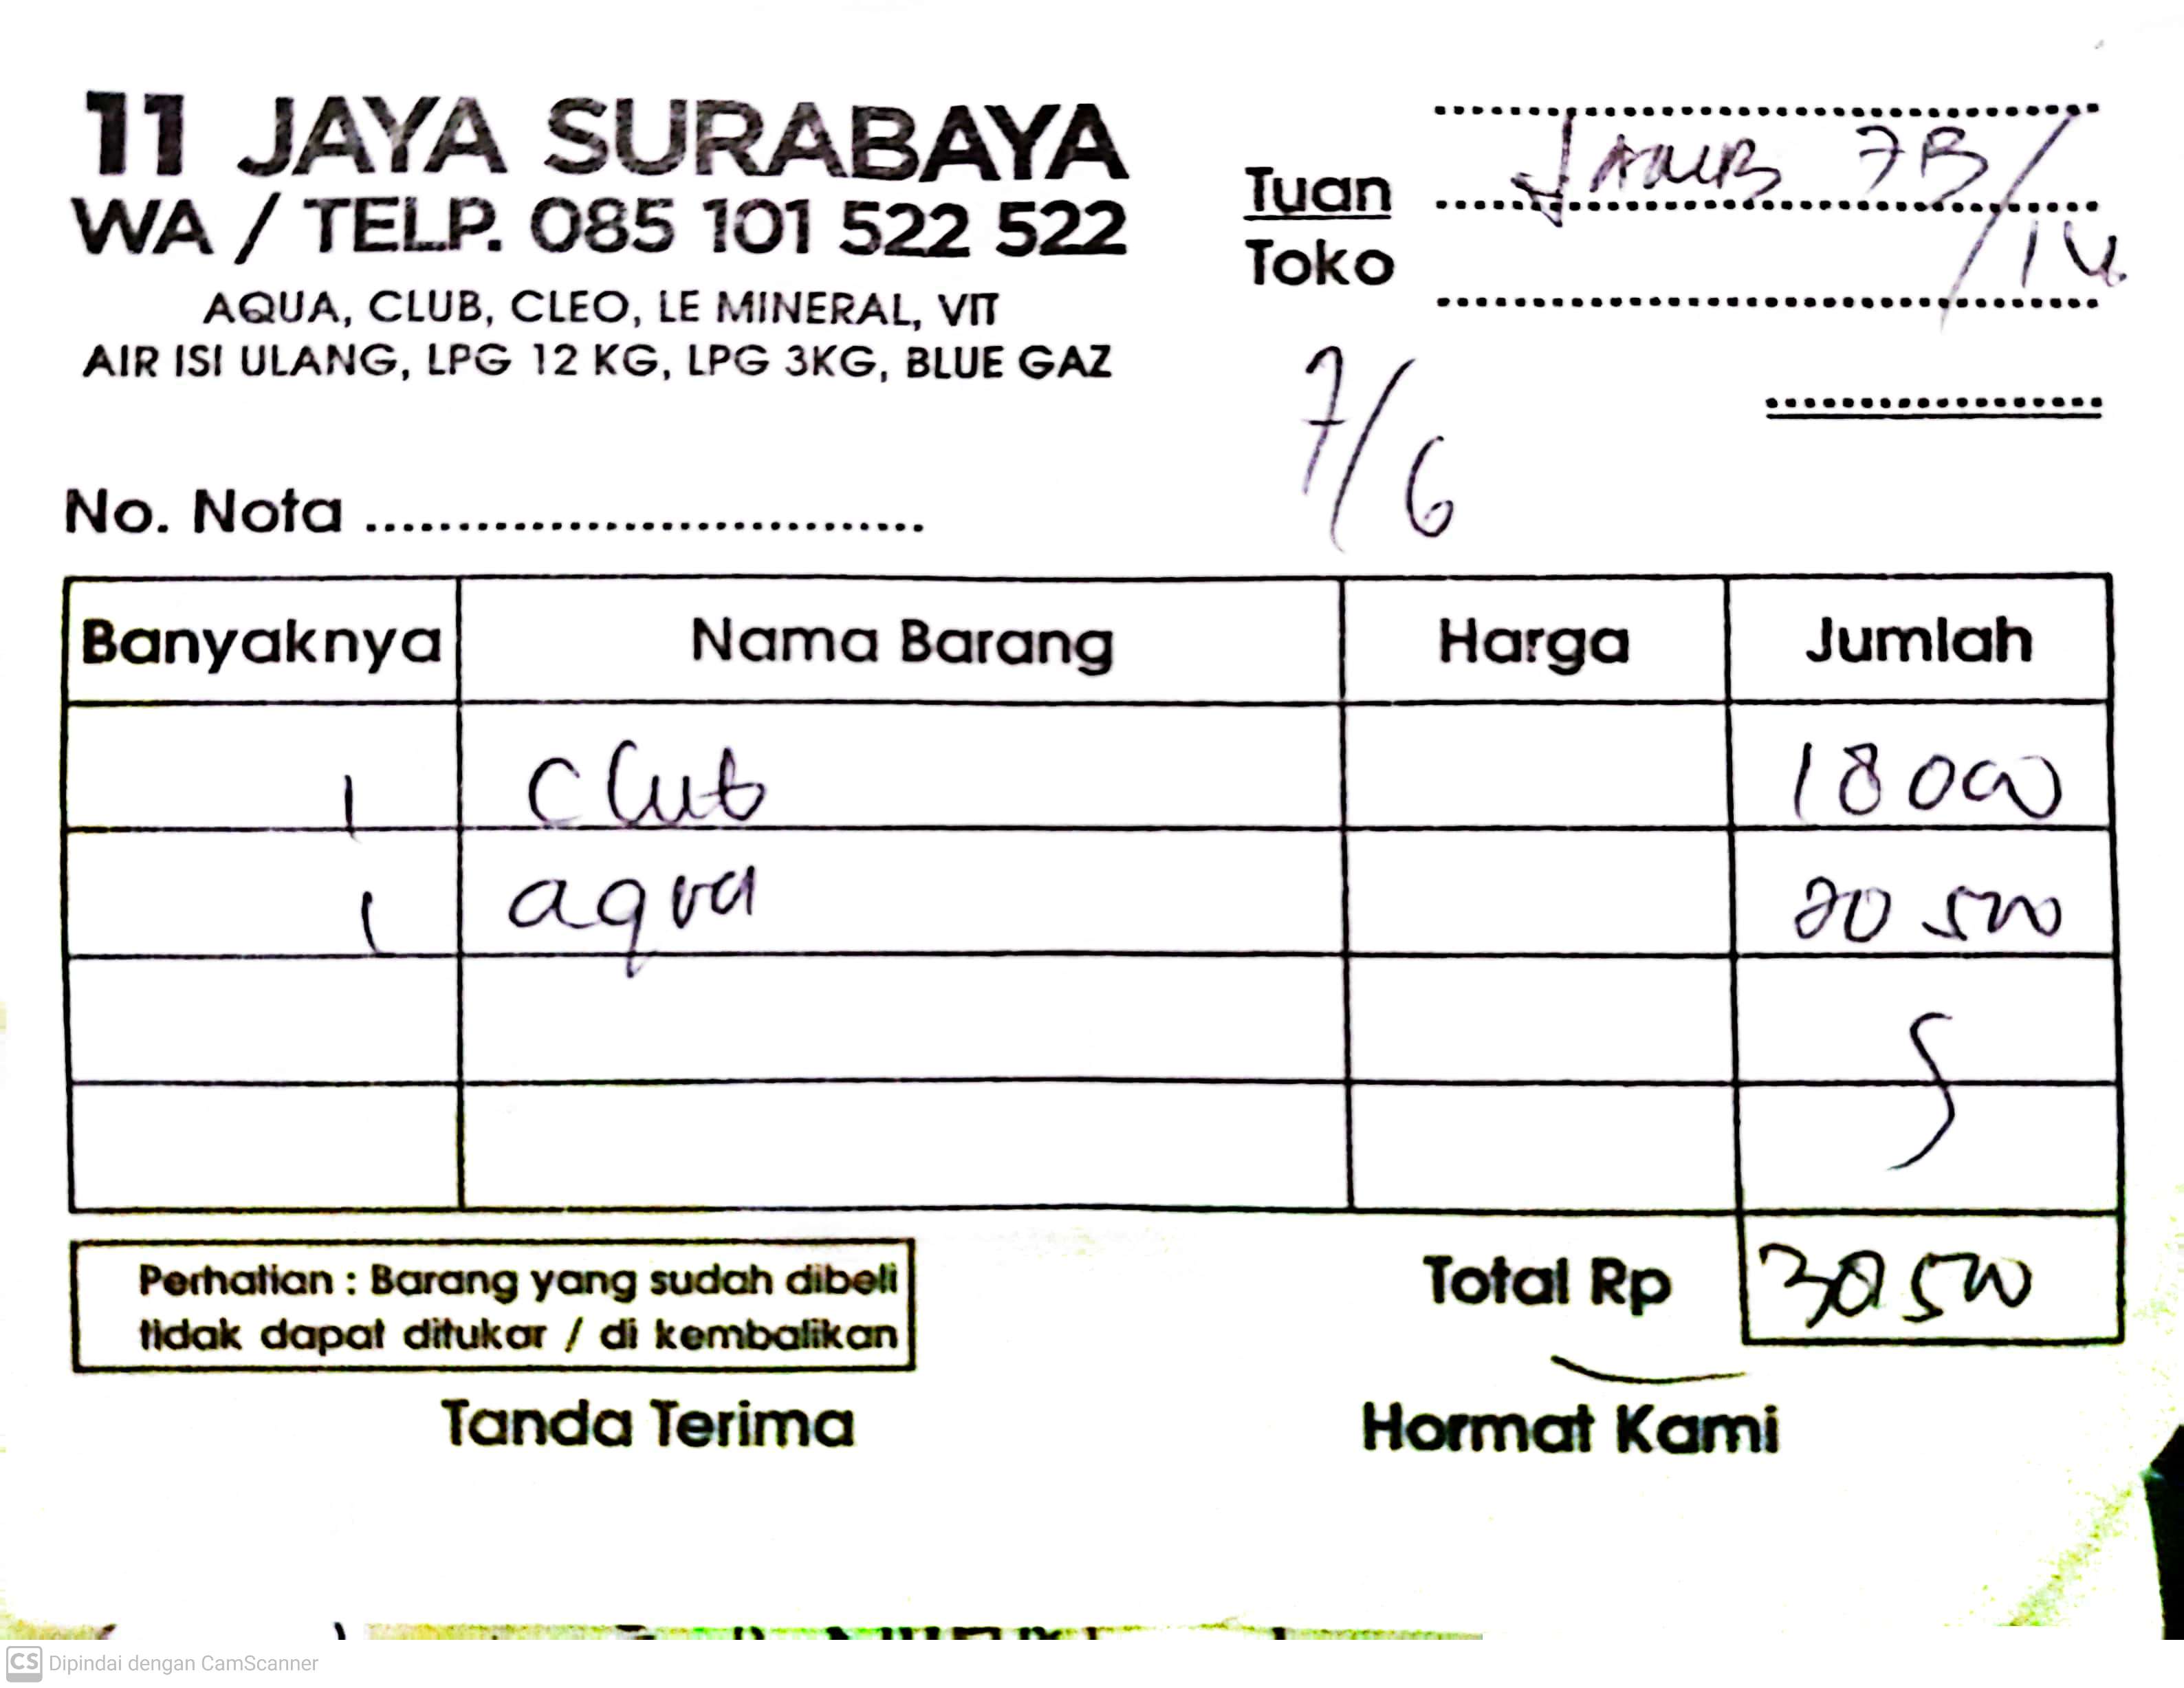 11 JAYA SURABAYA
WA / TELP. 085 101 522 522
AQUA, CLUB, CLEO, LE MINERAL, VIT
AIR ISI ULANG, LPG 12 KG, LPG 3KG, BLUE GAZ
Tuan
Toko
7B/14
7/6
No. Nota
Banyaknya Nama Barang Harga Jumlah
1 Club 18 000
1 aqua 20 500
Perhatian : Barang yang sudah dibeli
tidak dapat ditukar / di kembalikan
Total Rp
Tanda Terima
Hormat Kami
CS Dipindai dengan CamScanner